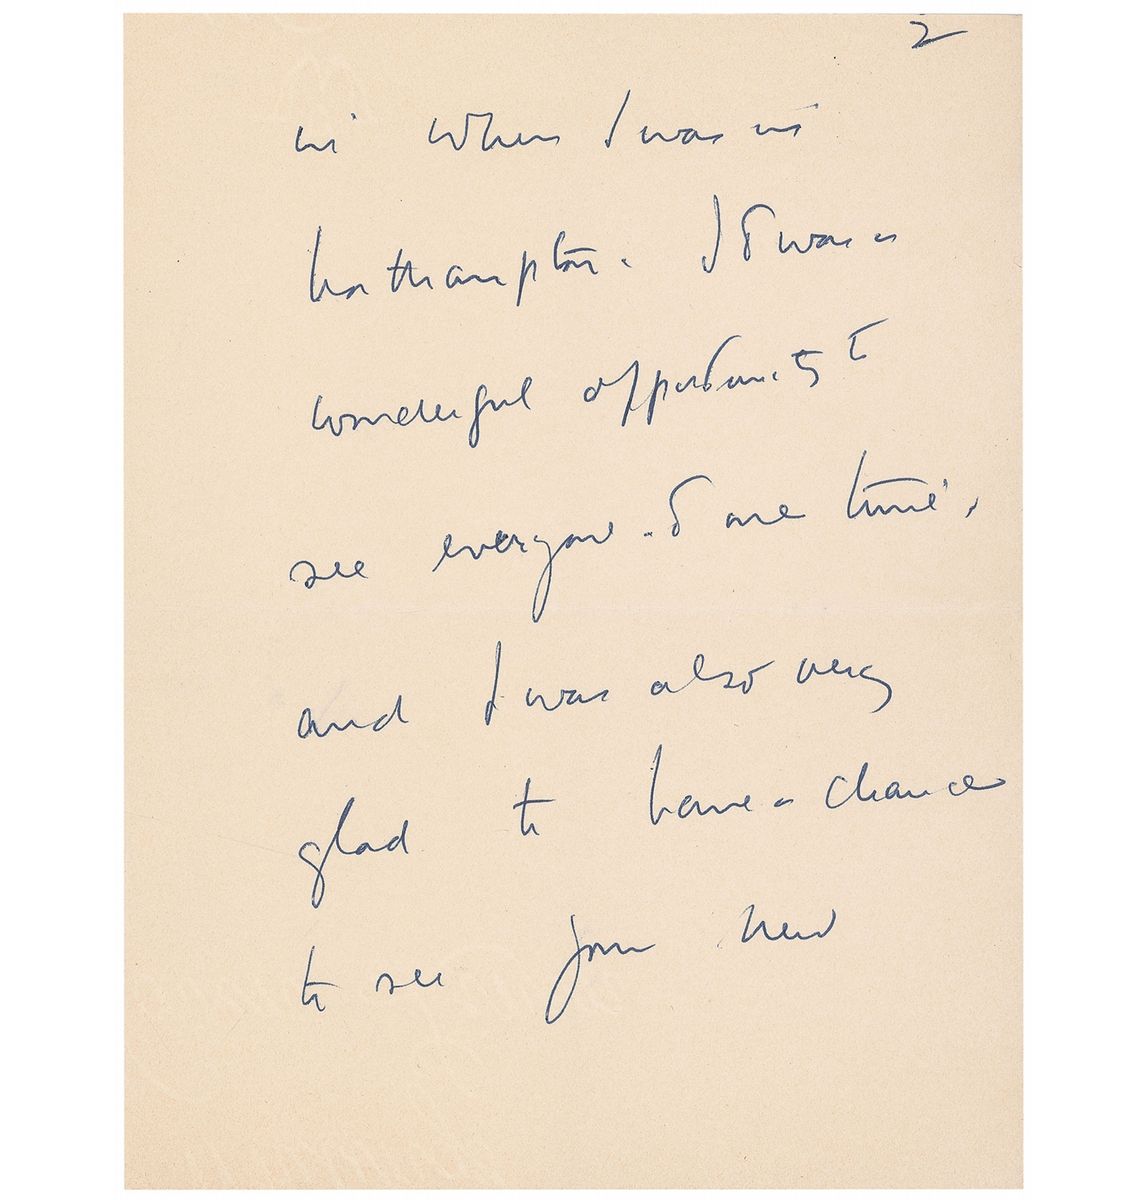 2
in when I was in
Northampton. It was a
wonderful opportunity to
see everyone at one time,
and I was also very
glad to have a chance
to see your new